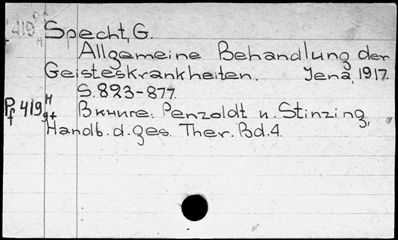 Specht, G.
Allgemeine Behandlung der
Geisteskrankheiten. Jena, 1917.
S. 823-877.
Pf 419 H
gt
Вкниге: Penzoldt u. Stinzing,
Handb. d. ges. Ther. Bd. 4.